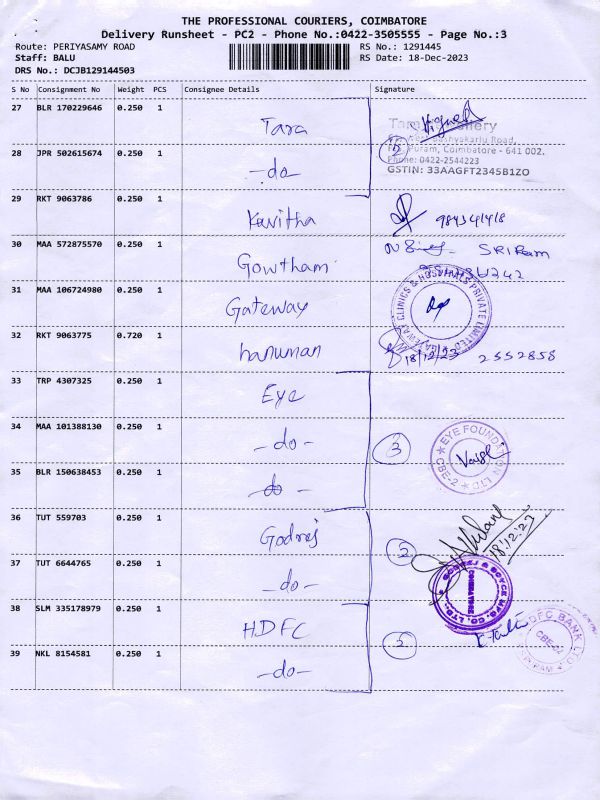 THE PROFESSIONAL COURIERS, COIMBATORE
Delivery Runsheet - PC2 - Phone No.:0422-3505555 - Page No.:3
Route: PERIYASAMY ROAD RS No.: 1291445
Staff: BALU RS Date: 18-Dec-2023
DRS No.: DCJB129144503
S No Consignment No Weight PCS Consignee Details Signature
27 BLR 170229646 0.250 1 Tara
28 JPR 502615674 0.250 1 -do- 2
Coimbatore - 641 002.
Phone: 0422-2544223
GSTIN: 33AAGFT2345B1ZO
29 RKT 9063786 0.250 1 Kavitha
30 MAA 572875570 0.250 1 Gowtham SRIRam
31 MAA 106724980 0.250 1 Gateway
GATEWAY CLINICS & HOSPITALS PRIVATE LIMITED
32 RKT 9063775 0.720 1 hanuman 18/12/23 2552858
33 TRP 4307325 0.250 1 Eye
34 MAA 101388130 0.250 1 -do- 3
EYE FOUNDATION LTD CBE-2
35 BLR 150638453 0.250 1 -do-
36 TUT 559703 0.250 1 Godrej 2 18.12.23
37 TUT 6644765 0.250 1 -do-
GODREJ & BOYCE MFG. CO. LTD. COIMBATORE
38 SLM 335178979 0.250 1 HDFC
HDFC BANK LTD. CBE-02
39 NKL 8154581 0.250 1 -do-